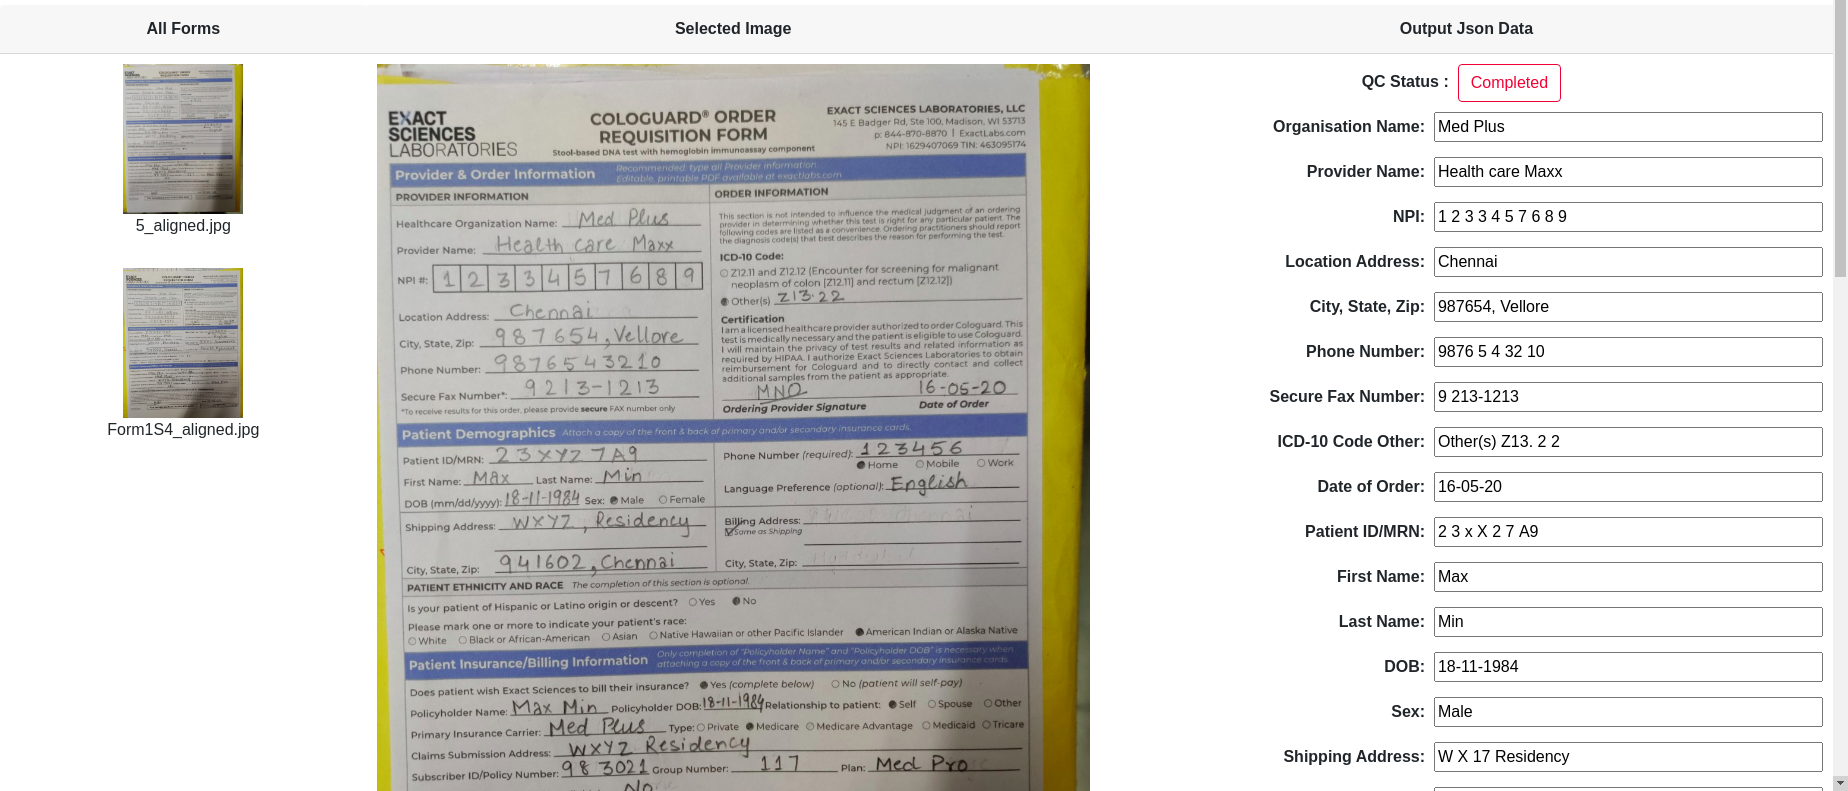 All Forms
Selected Image
Output Json Data
5_aligned.jpg
Form1S4_aligned.jpg
EXACT SCIENCES LABORATORIES
COLOGUARD® ORDER REQUISITION FORM
Stool-based DNA test with hemoglobin immunoassay component
EXACT SCIENCES LABORATORIES, LLC
145 E Badger Rd, Ste 100, Madison, WI 53713
p: 844-870-8870 | ExactLabs.com
NPI: 1629407069 TIN: 463095174
Provider & Order Information Recommended: type all Provider information.
Editable, printable PDF available at exactlabs.com
PROVIDER INFORMATION
Healthcare Organization Name: Med Plus
Provider Name: Health care Maxx
NPI #: 1 2 3 3 4 5 7 6 8 9
Location Address: Chennai
City, State, Zip: 987654, Vellore
Phone Number: 9876543210
Secure Fax Number*: 9213-1213
*To receive results for this order, please provide secure FAX number only
ORDER INFORMATION
This section is not intended to influence the medical judgment of an ordering
provider in determining whether this test is right for any particular patient. The
following codes are listed as a convenience. Ordering practitioners should report
the diagnosis code(s) that best describes the reason for performing the test.
ICD-10 Code:
Z12.11 and Z12.12 (Encounter for screening for malignant
neoplasm of colon [Z12.11] and rectum [Z12.12])
Other(s) Z13.22
Certification
I am a licensed healthcare provider authorized to order Cologuard. This
test is medically necessary and the patient is eligible to use Cologuard.
I will maintain the privacy of test results and related information as
required by HIPAA. I authorize Exact Sciences Laboratories to obtain
reimbursement for Cologuard and to directly contact and collect
additional samples from the patient as appropriate.
MNO 16-05-20
Ordering Provider Signature Date of Order
Patient Demographics Attach a copy of the front & back of primary and/or secondary insurance cards.
Patient ID/MRN: 23XYZ7A9
First Name: Max Last Name: Min
DOB (mm/dd/yyyy): 18-11-1984 Sex: Male Female
Phone Number (required): 123456
Home Mobile Work
Language Preference (optional): English
Shipping Address: WXYZ, Residency
City, State, Zip: 941602, Chennai
Billing Address:
Same as Shipping
City, State, Zip:
PATIENT ETHNICITY AND RACE The completion of this section is optional.
Is your patient of Hispanic or Latino origin or descent? Yes No
Please mark one or more to indicate your patient's race:
White Black or African-American Asian Native Hawaiian or other Pacific Islander American Indian or Alaska Native
Patient Insurance/Billing Information Only completion of "Policyholder Name" and "Policyholder DOB" is necessary when
attaching a copy of the front & back of primary and/or secondary insurance cards.
Does patient wish Exact Sciences to bill their insurance? Yes (complete below) No (patient will self-pay)
Policyholder Name: Max Min Policyholder DOB: 18-11-1984 Relationship to patient: Self Spouse Other
Primary Insurance Carrier: Med Plus Type: Private Medicare Medicare Advantage Medicaid Tricare
Claims Submission Address: WXYZ Residency
Subscriber ID/Policy Number: 983021 Group Number: 117 Plan: Med Pro
No
QC Status : Completed
Organisation Name: Med Plus
Provider Name: Health care Maxx
NPI: 1 2 3 3 4 5 7 6 8 9
Location Address: Chennai
City, State, Zip: 987654, Vellore
Phone Number: 9876 5 4 32 10
Secure Fax Number: 9 213-1213
ICD-10 Code Other: Other(s) Z13. 2 2
Date of Order: 16-05-20
Patient ID/MRN: 2 3 x X 2 7 A9
First Name: Max
Last Name: Min
DOB: 18-11-1984
Sex: Male
Shipping Address: W X 17 Residency